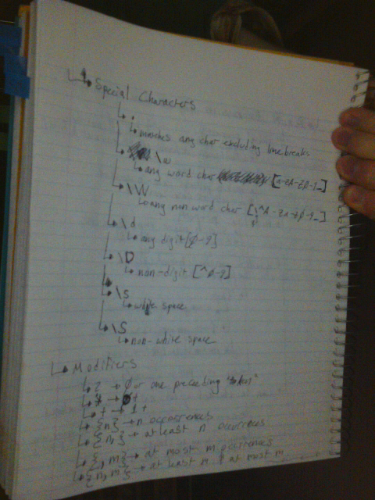 Special Characters
.
matches any char excluding linebreak
\w
any word char [a-zA-Z0-9_]
\W
any non word char [^A-Za-z0-9_]
\d
any digit [0-9]
\D
non-digit [^0-9]
\s
white space
\S
non-white space
Modifiers
? → 0 or one preceding "token"
* → 0+
+ → 1+
{n} → n occurrences
{n,} → at least n occurrences
{,m} → at most m
{n,m} → at least n & at most m